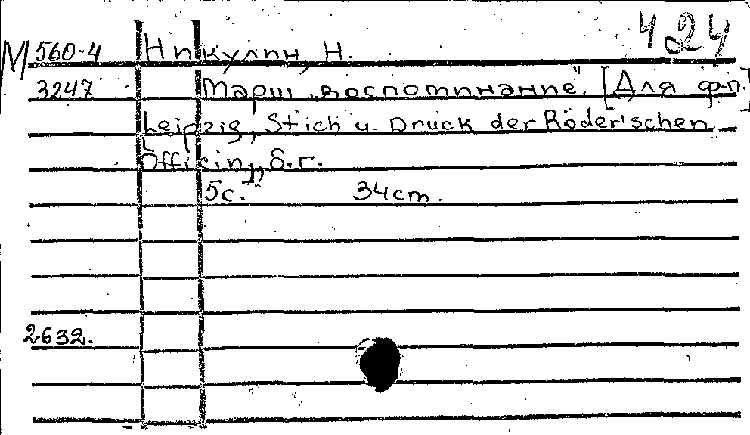 М 560-4 Никулин, Н. 424
3247 Марш „воспоминание". [Для ф-п.]
Leipzig, Stich u. Druck der Röder'schen
Officin, б.г.
5с. 34cm.
2632.